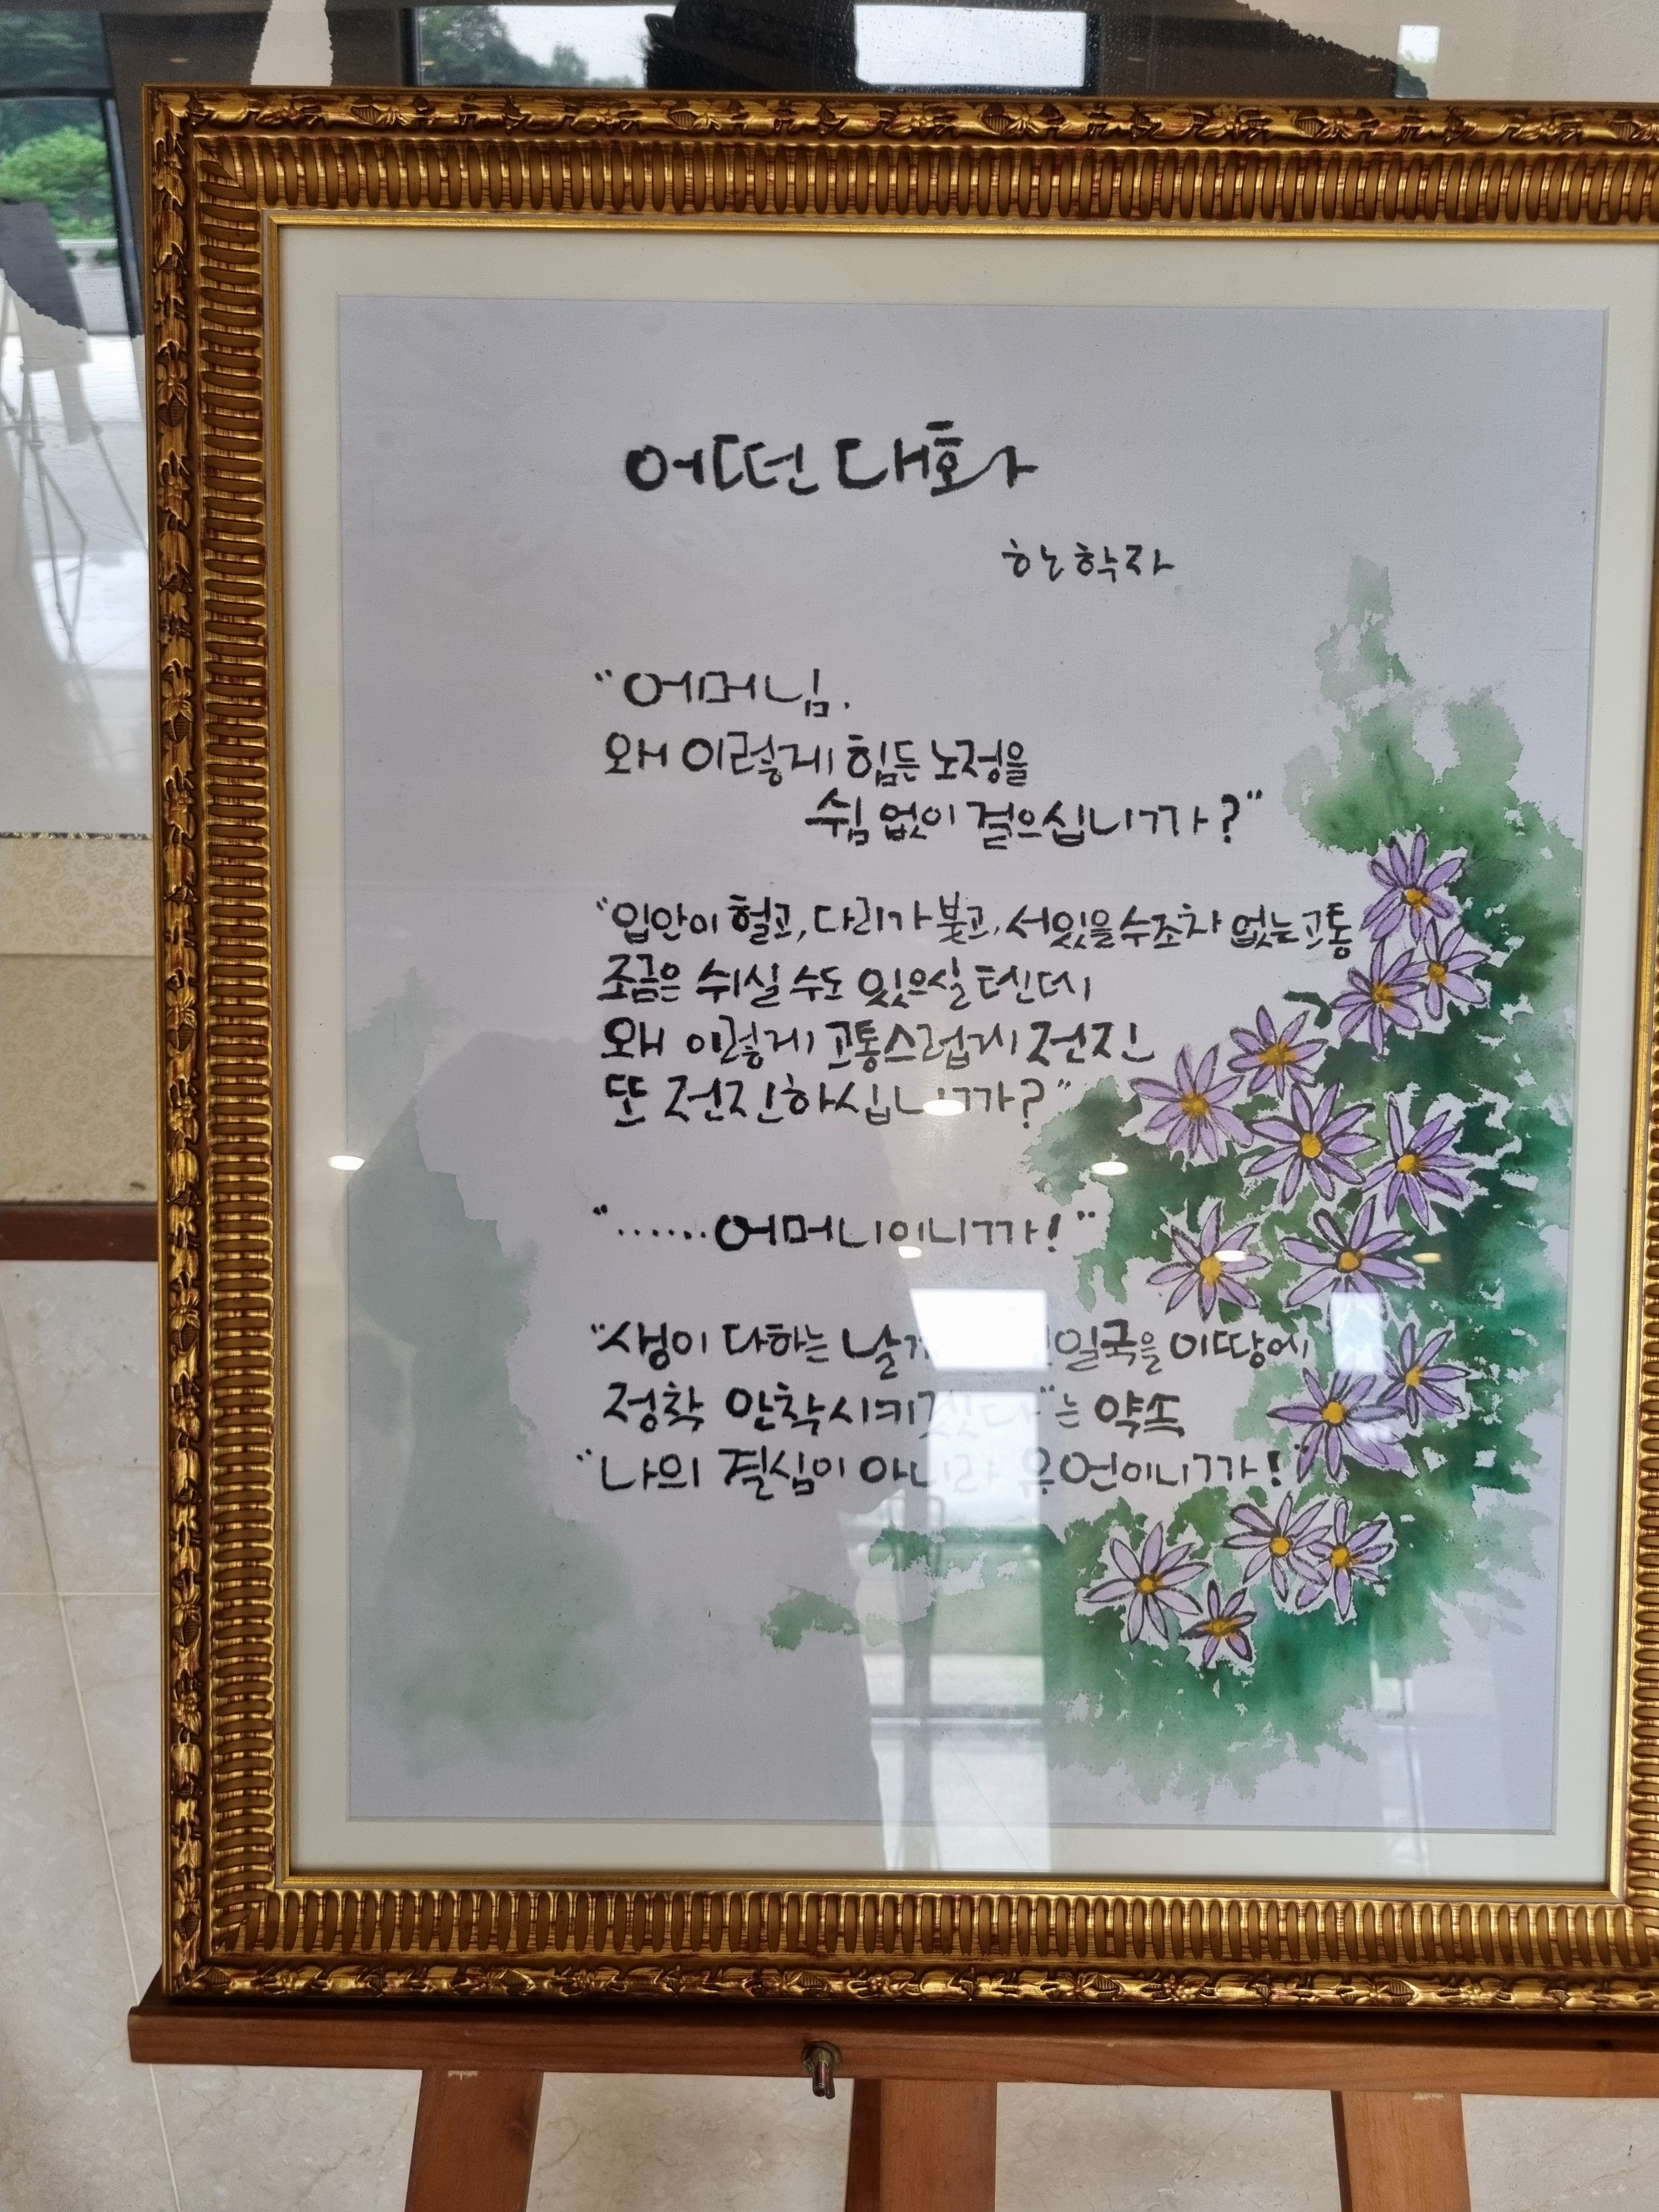 어떤 대화
한학자
"어머님.
왜 이렇게 힘든 노정을
쉼 없이 걸으십니까?"
"입안이 헐고, 다리가 붓고, 서있을수조차 없는고통
조금은 쉬실 수도 있으실 텐데
왜 이렇게 고통스럽게 전진
또 전진하십니까?"
"......어머니이니까!"
"생이 다하는 이땅에
정착 안착시키겠다"는 약속
"나의 결심이 아니라 유언이니까!"